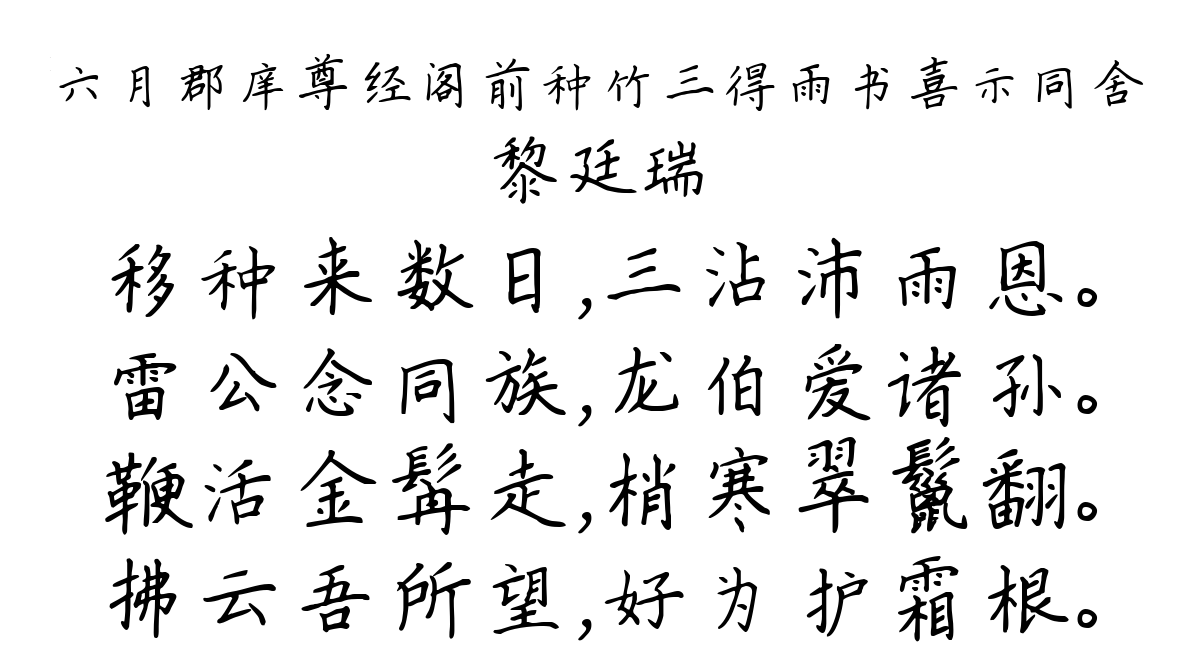 六月郡庠尊经阁前种竹三得雨书喜示同舍
黎廷瑞
移种来数日,三沾沛雨恩。
雷公念同族,龙伯爱诸孙。
鞭活金髯走,梢寒翠鬣翻。
拂云吾所望,好为护霜根。